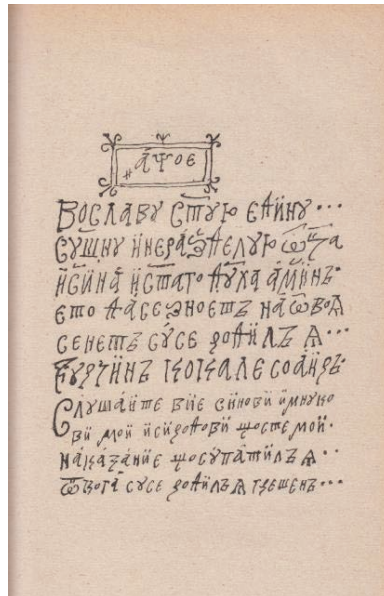 ҂аѱое
Вославу стую едину...
сушну инераздѣлую ѿца
исина истаго духа аминь.
ето дасезноетъ наѿвоѧ
сенетъ сусе родилъ ѧ...
Ђурђинъ Кокале содиръ.
Слушаите вие синови имнуко
ви мои исиродови щостемои.
наказание щосупатилъ ѧ..
ѿбога сусе родилъ ѧ грешенъ...